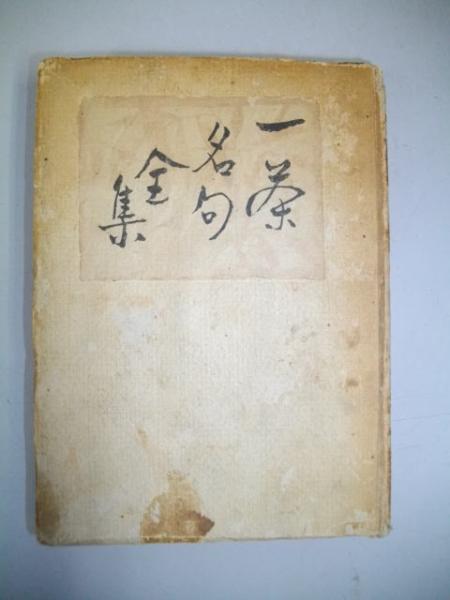 一茶
名句
全集